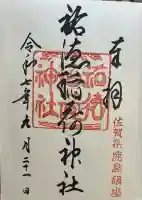 奉拝
佐賀県鹿島鎮座
祐徳稲荷神社
令和七年九月二十一日